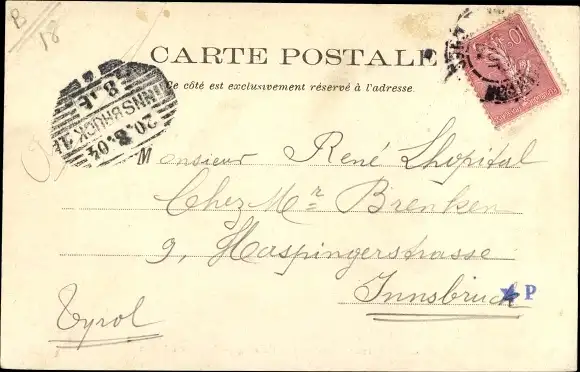 B
18
CARTE POSTALE
Ce côté est exclusivement réservé à l'adresse.
10
INNSBRUCK 1
20.8.04
8.
Monsieur René Lhopital
Chez Mr Brenken
9, Haspingerstrasse
Innsbruck
P
Tyrol